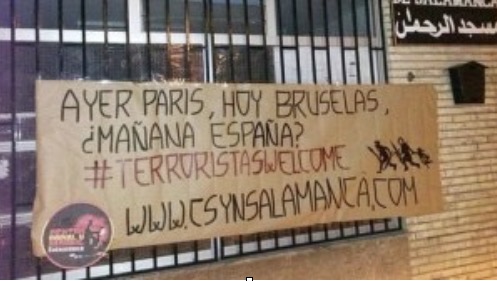 DE SALAMANCA
مسجد الرحمن
AYER PARIS, HOY BRUSELAS,
¿MAÑANA ESPAÑA?
#TERRORISTASWELCOME
WWW.CSYNSALAMANCA.COM